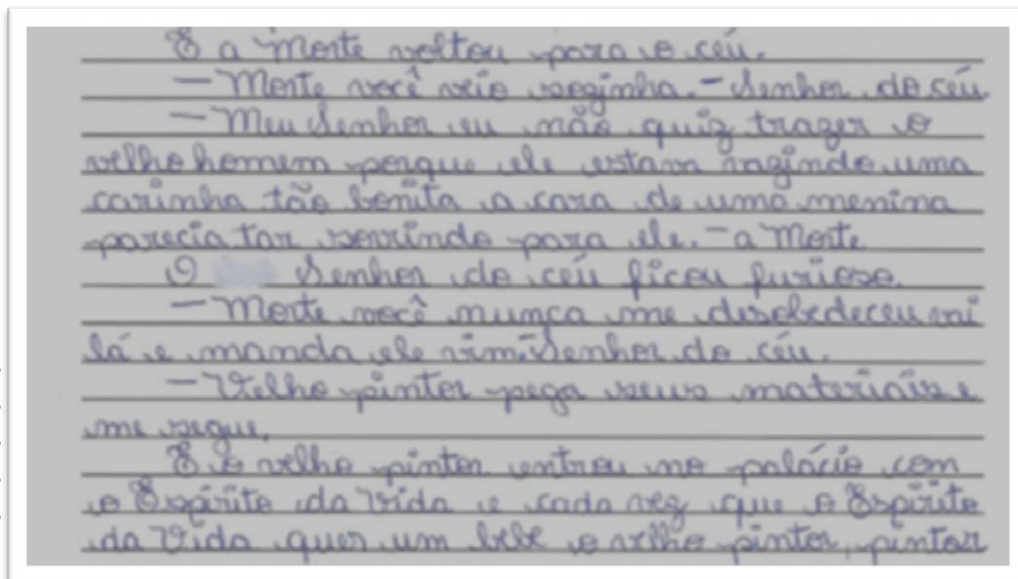 E a Morte voltou para o céu.
— Morte você veio sozinha. - Senhor do céu.
— Meu Senhor eu não quiz trazer o
velho homem porque ele estava fazindo uma
carinha tão bonita a cara de uma menina
parecia tar sorrindo para ele. - a Morte
O Senhor do céu ficou furioso.
— Morte você nunca me desobedeceu vai
lá e manda ele vim. Senhor do céu.
— Velho pintor pega seus materiais e
me segue.
E o velho pintor entrou no palácio com
o Espírito da Vida e cada vez que o Espírito
da Vida quer um bebe o velho pintor, pintar